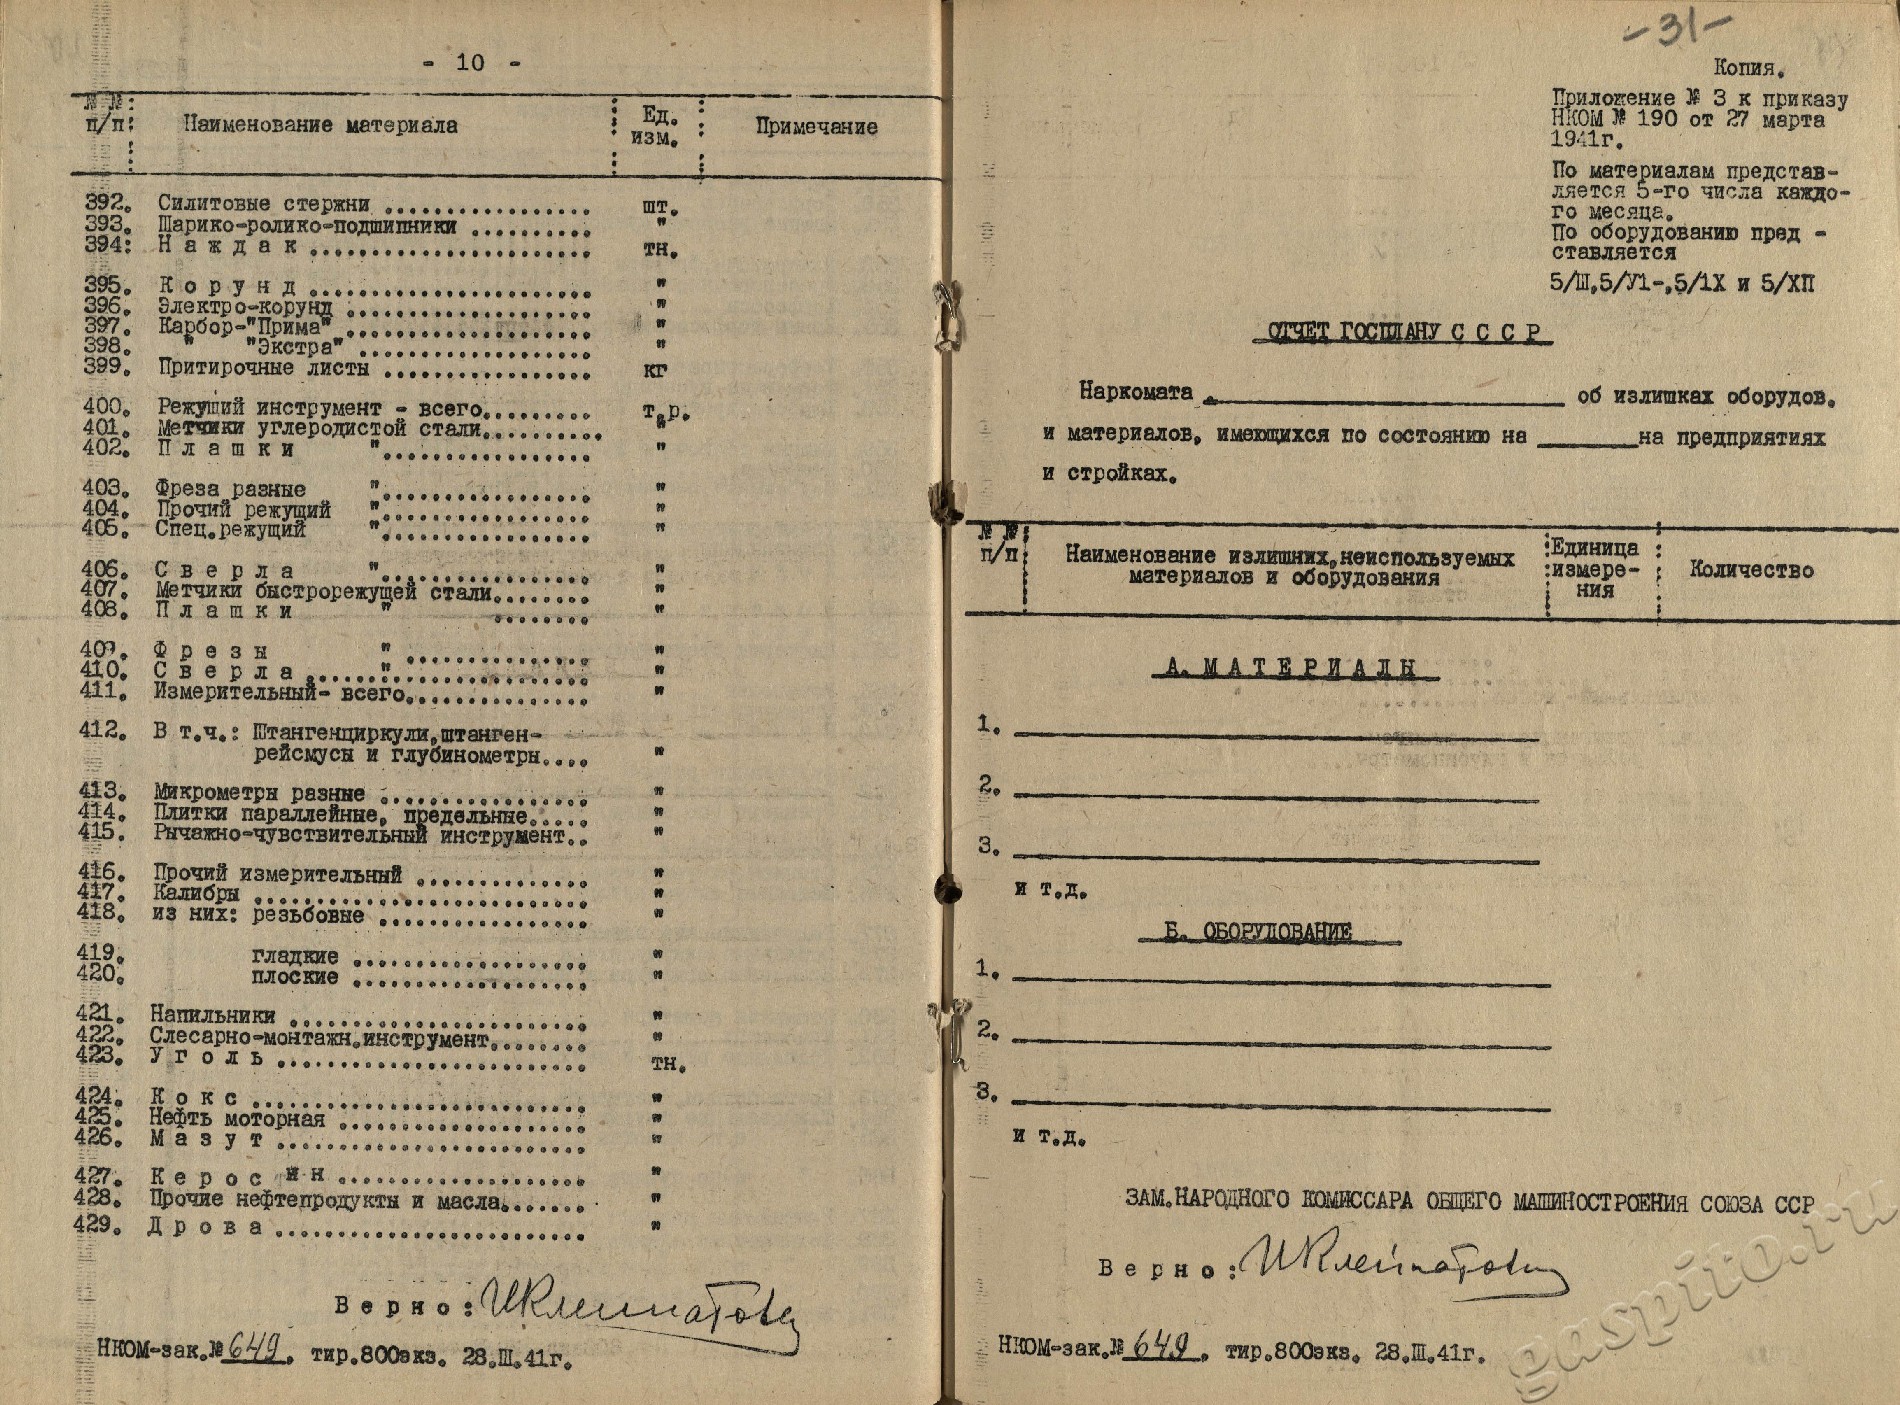 - 10 -
№ №
п/п
Наименование материала
Ед.
изм.
Примечание
392. Силитовые стержни ................. шт.
393. Шарико-ролико-подшипники .......... "
394: Н а ж д а к ....................... тн.
395. К о р у н д ....................... "
396. Электро-корунд .................... "
397. Карбор-"Прима" .................... "
398. " "Экстра" ................... "
399. Притирочные листы ................. кг
400. Режущий инструмент - всего......... т.р.
401. Метчики углеродистой стали.......... "
402. П л а ш к и "................. "
403. Фреза разные "................. "
404. Прочий режущий "................. "
405. Спец.режущий "................. "
406. С в е р л а "................. "
407. Метчики быстрорежущей стали........ "
408. П л а ш к и " ........ "
409. Ф р е з ы " ............... "
410. С в е р л а ......"................ "
411. Измерительный- всего............... "
412. В т.ч.: Штангенциркули,штанген-
рейсмусы и глубинометры.... "
413. Микрометры разные ................. "
414. Плитки параллейные, предельные..... "
415. Рычажно-чувствительный инструмент.. "
416. Прочий измерительный .............. "
417. Калибры ........................... "
418. из них: резьбовые ................. "
419. гладкие ................... "
420. плоские ................... "
421. Напильники ........................ "
422. Слесарно-монтажн.инструмент........ "
423. У г о л ь ......................... тн.
424. К о к с ........................... "
425. Нефть моторная .................... "
426. М а з у т ......................... "
427. К е р о с и н .................... "
428. Прочие нефтепродукты и масла....... "
429. Д р о в а ......................... "
В е р н о :
НКОМ-зак.№ 649. тир.800экз. 28.III.41г.
-31-
Копия.
Приложение № 3 к приказу
НКОМ № 190 от 27 марта
1941г.
По материалам представ-
ляется 5-го числа каждо-
го месяца.
По оборудованию пред -
ставляется
5/Ш,5/У1-,5/1Х и 5/ХП
ОТЧЕТ ГОСПЛАНУ С С С Р
Наркомата ____________ об излишках оборудов.
и материалов, имеющихся по состоянию на ______на предприятиях
и стройках.
№ №
п/п
Наименование излишних,неиспользуемых
материалов и оборудования
Единица
измере-
ния
Количество
А. М А Т Е Р И А Л Ы
1.
2.
3.
и т.д.
Б. ОБОРУДОВАНИЕ
1.
2.
3.
и т.д.
ЗАМ.НАРОДНОГО КОМИССАРА ОБЩЕГО МАШИНОСТРОЕНИЯ СОЮЗА ССР
В е р н о :
НКОМ-зак.№ 649. тир.800экз. 28.III.41г.
gaspito.ru